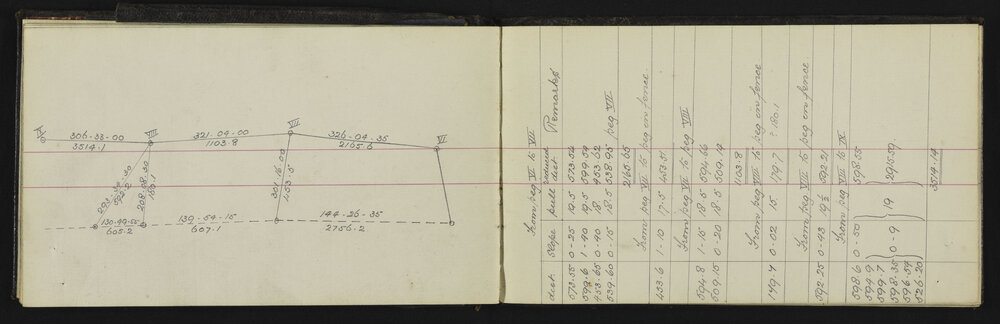 IX
306-38-00
3514.1
VIII
321-04-00
1103.8
VII
326-04-35
2165.6
VI
208-08-30
150.1
301-16-00
453.5
130-49-55
605.2
139-54-15
607.1
144-26-35
2756.2
From peg VI to VII
dist Slope pull reduced dist Remarks
573.55 0-25 19.5 573.54
599.6 1-40 19.5 599.59
453.65 0-40 18 453.62
539.60 0-15 18.5 538.95 peg VII
2165.65
From peg VII to peg in fence.
453.6 1-10 17.5 453.51
From peg VII to peg VIII
594.8 1-15 18.5 594.66
509.15 0-20 18.5 509.14
1103.8
From peg VIII to peg in fence
149.7 0-02 15 149.7 ? 150.1
From peg VIII to peg in fence
592.25 0-43 19½ 592.21
From peg VIII to IX
598.6 0-50 598.55
599.9
599.7
598.35 0-9 19 2915.59
596.59
526.20
3514.14